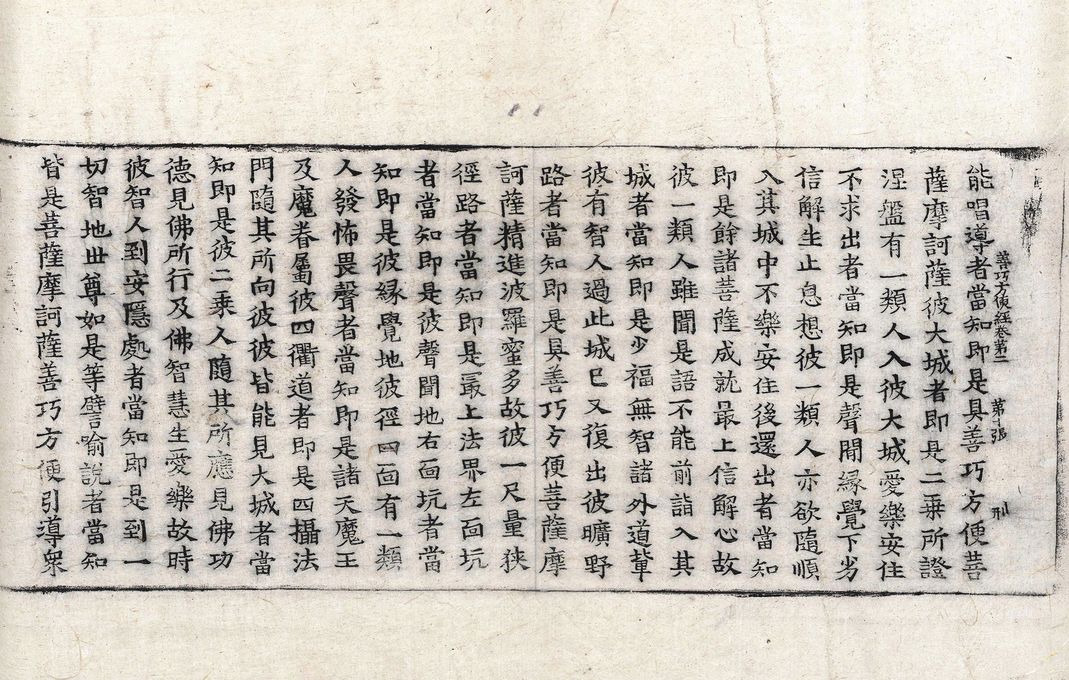 能唱導者當知即是具善巧方便菩
善巧方便經卷第二 第十張 刑
薩摩訶薩彼大城者即是二乗所證
涅盤有一類人入彼大城愛樂安住
不求出者當知即是聲聞緣覺下劣
信解生止息想彼一類人亦欲隨順
入其城中不樂安住後還出者當知
即是餘諸菩薩成就最上信解心故
彼一類人雖聞是語不能前詣入其
城者當知即是少福無智諸外道輩
彼有智人過此城已又復出彼曠野
路者當知即是具善巧方便菩薩摩
訶薩精進波羅蜜多故彼一尺量狹
徑路者當知即是最上法界左面坑
者當知即是彼聲聞地右面坑者當
知即是彼緣覺地彼徑四面有一類
人發怖畏聲者當知即是諸天魔王
及魔眷屬彼四衢道者即是四攝法
門隨其所向彼彼皆能見大城者當
知即是彼二乗人隨其所應見佛功
德見佛所行及佛智慧生愛樂故時
彼智人到安隱處者當知即是到一
切智地世尊如是等譬喻說者當知
皆是菩薩摩訶薩善巧方便引導衆